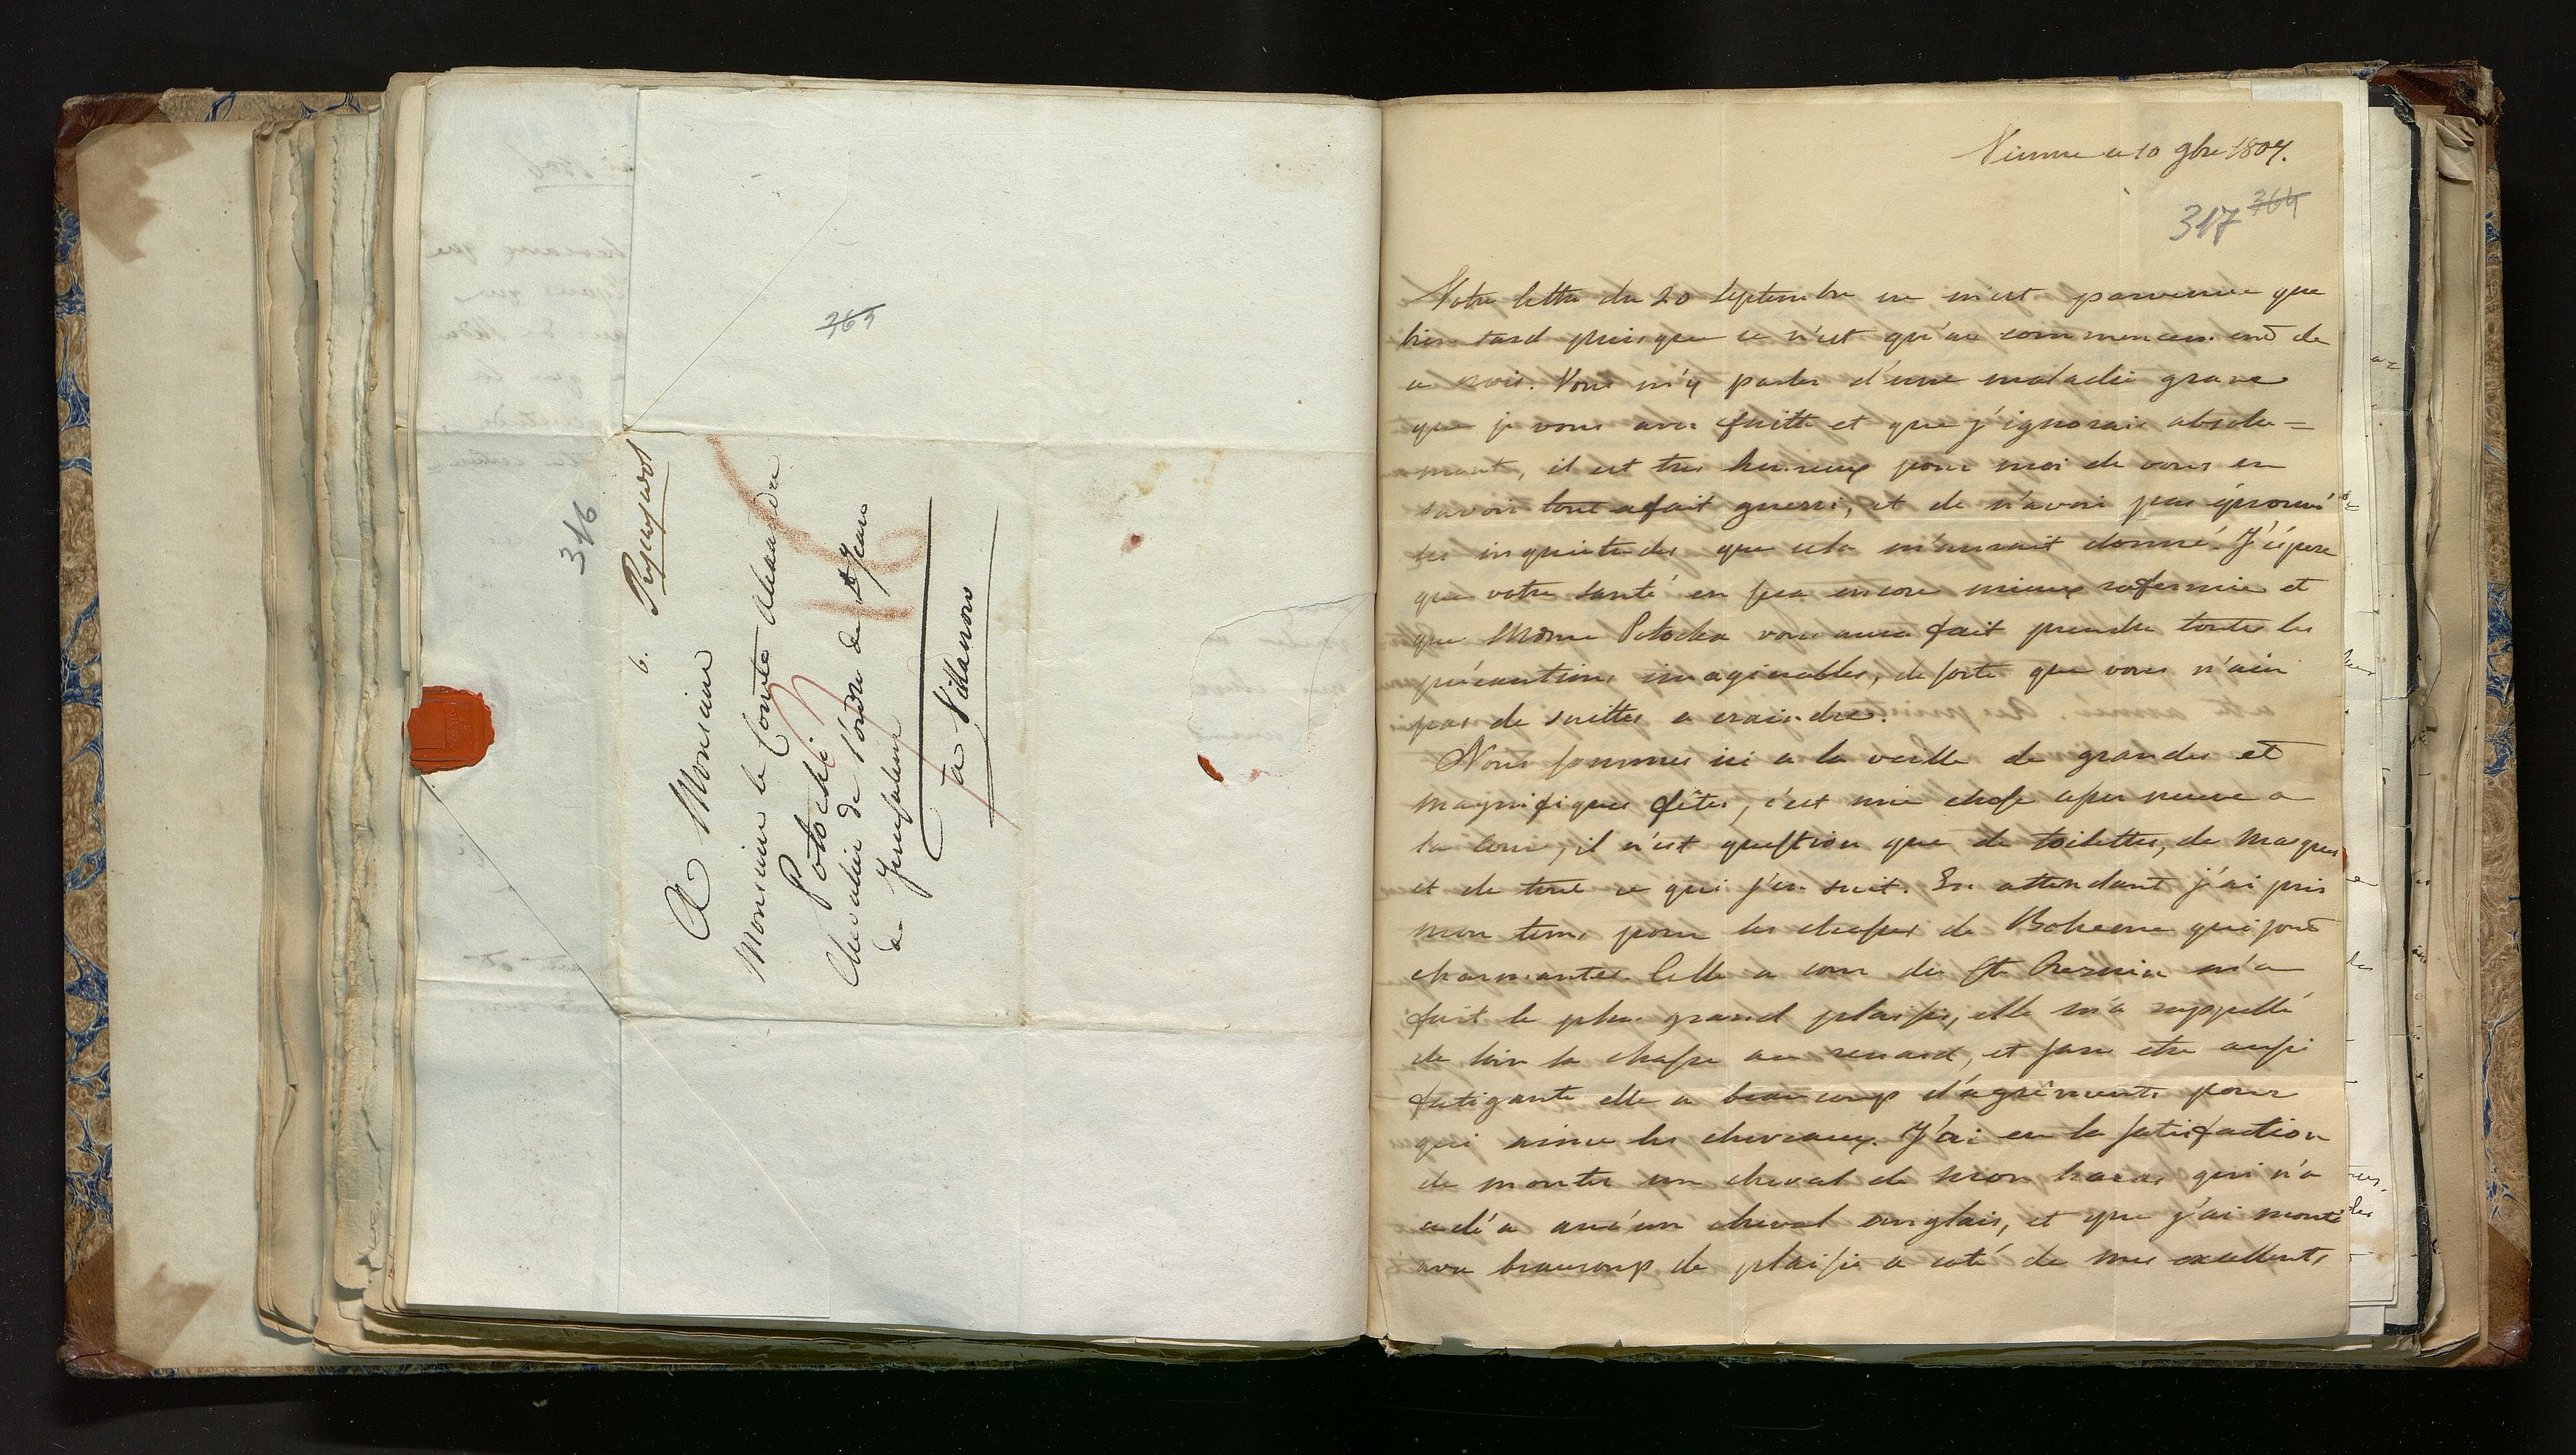 363
316
6.
A Monsieur
Monsieur le Comte Alexandre
Potocki
Chevalier de l'ordre de St Jean
de Jerusalem
à Villanow
Vienne ce 10 9bre 1807.
317 364
Votre lettre du 20 Septembre ne m'est parvenue que
bien tard puisque ce n'est qu'au commencement de
ce mois. Vous m'y parlez d'une maladie grave
que je vous avez faitte et que j'ignorais absolu=
ment, il est tres heureux pour moi de vous en
savoir tout afait gueri, et de n'avoir pas éprouvé
les inquietudes que cela m'aurait donné. J'éspere
que votre santé en sera encore mieux rafermie et
que Mdme Potocka vous aura fait prendre toutes les
précautions imaginables, de sorte que vous n'aiez
pas de suittes a craindre.
Nous sommes ici a la veille de grandes et
magnifiques fêtes, c'est une chose assez neuve a
la Cour, il n'est question que de toilettes, de masques
et de tout ce qui s'en suit. En attendant j'ai pris
mon tems pour les chasses de Boheme qui sont
charmantes. Celle a cour du m'a
fait le plus grand plaisir, elle m'a rappellé
de loin la chasse au renard, et sans etre aussi
fatigante elle a beaucoup d'agréments pour
qui aime les chevaux. J'ai eu la satisfaction
de monter un cheval de mon haras qui n'a
cedé a aucun cheval anglais, et que j'ai monté
avec beaucoup de plaisir a coté de mes excellents